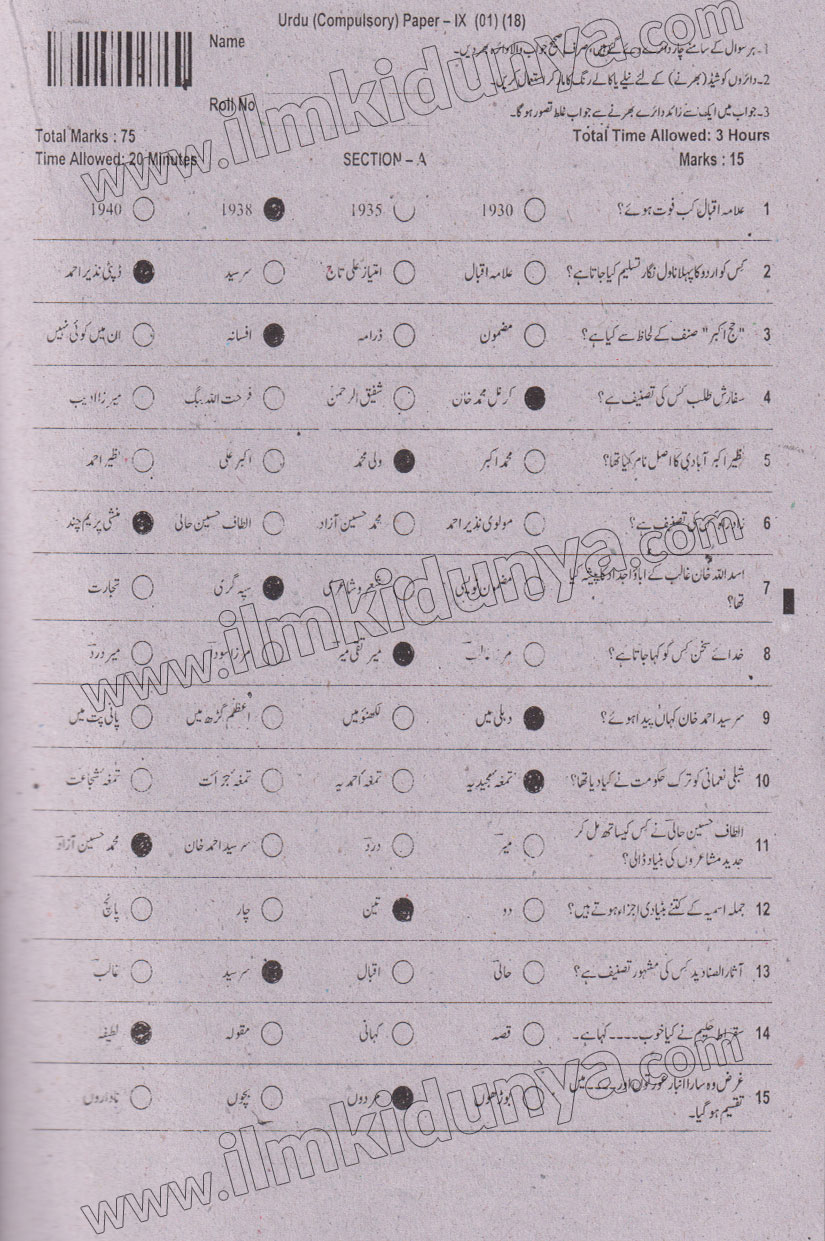 Urdu (Compulsory) Paper – IX (01) (18)
Name
1۔ ہر سوال کے سامنے چار دائرے دئے گئے ہیں، صرف صحیح جواب والا دائرہ بھر دیں۔
2۔ دائروں کو شیڈ (بھرنے) کے لئے نیلے یا کالے رنگ کا مارکر استعمال کریں۔
Roll No
3۔ جواب میں ایک سے زائد دائرے بھرنے سے جواب غلط تصور ہوگا۔
Total Marks : 75
Total Time Allowed: 3 Hours
Time Allowed: 20 Minutes
SECTION – A
Marks : 15
1 علامہ اقبال کب فوت ہوئے؟ 1930 1935 1938 1940
2 کس کو اردو کا پہلا ناول نگار تسلیم کیا جاتا ہے؟ علامہ اقبال امتیاز علی تاج سرسید ڈپٹی نذیر احمد
3 "حج اکبر" صنف کے لحاظ سے کیا ہے؟ مضمون ڈرامہ افسانہ ان میں کوئی نہیں
4 سفارش طلب کس کی تصنیف ہے؟ کرنل محمد خان شفیق الرحمن فرحت اللہ بیگ میرزا ادیب
5 نظیر اکبر آبادی کا اصل نام کیا تھا؟ محمد اکبر ولی محمد اکبر علی نظیر احمد
6 زاد راہ کس کی تصنیف ہے؟ مولوی نذیر احمد محمد حسین آزاد الطاف حسین حالی منشی پریم چند
7 اسد اللہ خان غالب کے اباؤ اجداد کا پیشہ کیا مضمون نویسی شعر و شاعری سپہ گری تجارت
تھا؟
8 خدائے سخن کس کو کہا جاتا ہے؟ مرزا غالب میر تقی میر مرزا سودا میر درد
9 سرسید احمد خان کہاں پیدا ہوئے؟ دہلی میں لکھنؤ میں اعظم گڑھ میں پانی پت میں
10 شبلی نعمانی کو ترک حکومت نے کیا دیا تھا؟ تمغہ مجیدیہ تمغہ احمدیہ تمغہ جرأت تمغہ شجاعت
11 الطاف حسین حالی نے کس کیساتھ مل کر میر درد سرسید احمد خان محمد حسین آزاد
جدید مشاعروں کی بنیاد ڈالی؟
12 جملہ اسمیہ کے کتنے بنیادی اجزاء ہوتے ہیں؟ دو تین چار پانچ
13 آثار الصنادید کس کی مشہور تصنیف ہے؟ حالی اقبال سرسید غالب
14 سقراط حکیم نے کیا خوب ۔۔۔۔ کہا ہے۔ قصہ کہانی مقولہ لطیفہ
15 غرض وہ سارا انبار عورتوں اور ۔۔۔۔ میں بوڑھوں مردوں بچوں ناداروں
تقسیم ہو گیا۔
www.ilmkidunya.com
www.ilmkidunya.com
www.ilmkidunya.com